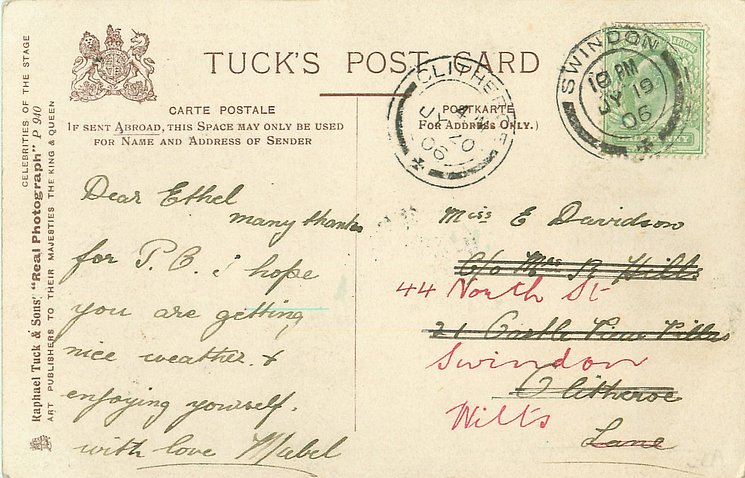 TUCK'S POST CARD
CARTE POSTALE
POSTKARTE
IF SENT ABROAD, THIS SPACE MAY ONLY BE USED
FOR NAME AND ADDRESS OF SENDER
FOR ADDRESS ONLY.)
CELEBRITIES OF THE STAGE
Raphael Tuck & Sons' "Real Photograph" P 940
ART PUBLISHERS TO THEIR MAJESTIES THE KING & QUEEN
CLITHEROE
JY 20
06
SWINDON
PM
JY 19
06
Dear Ethel
many thanks
for P.C. i hope
you are getting
nice weather. &
enjoying yourself.
with love Mabel
Miss E Davidson
C/o Mrs R Hills
44 North St
21 Castle View Villas
Swindon
Clitheroe
Wilts
Lane